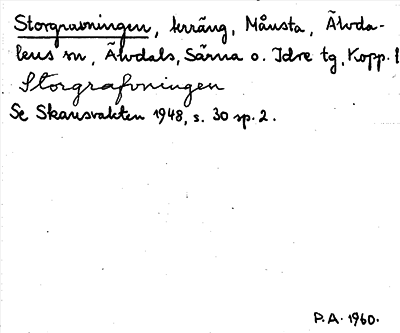 Storgravningen, kräng, Månsta, Älvda-
lens sn, Älvdals, Särna o. Idre tg, Kopp. l
Storgrafvningen
Se Skansvakten 1948, s. 30 sp. 2.
P.A. 1960.